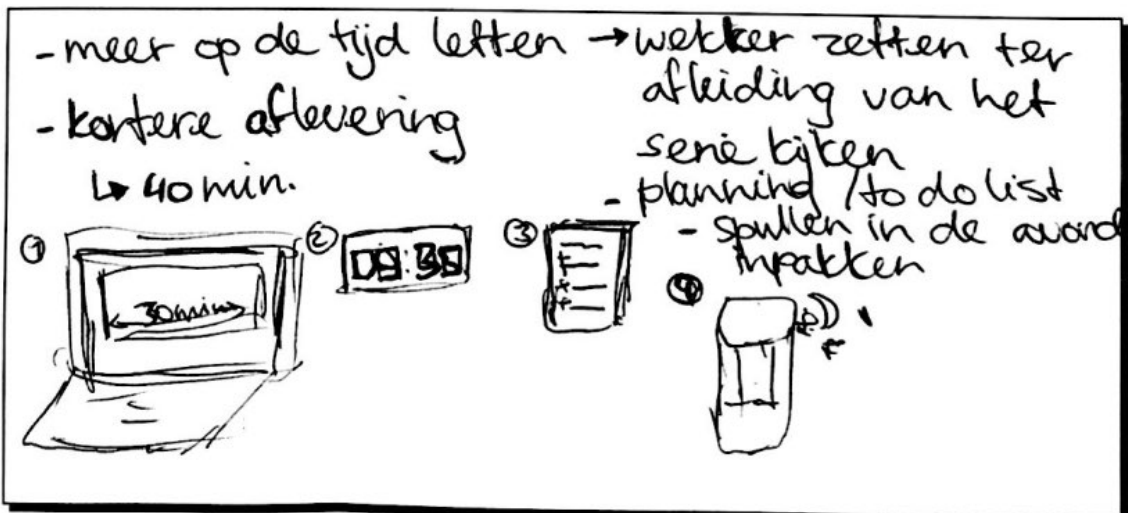 - meer op de tijd letten → wekker zetten ter
afleiding van het
serie kijken
- kortere aflevering
↳ 40 min.
- planning / to do list
- spullen in de avond
inpakken
①
30 min
②
③
④